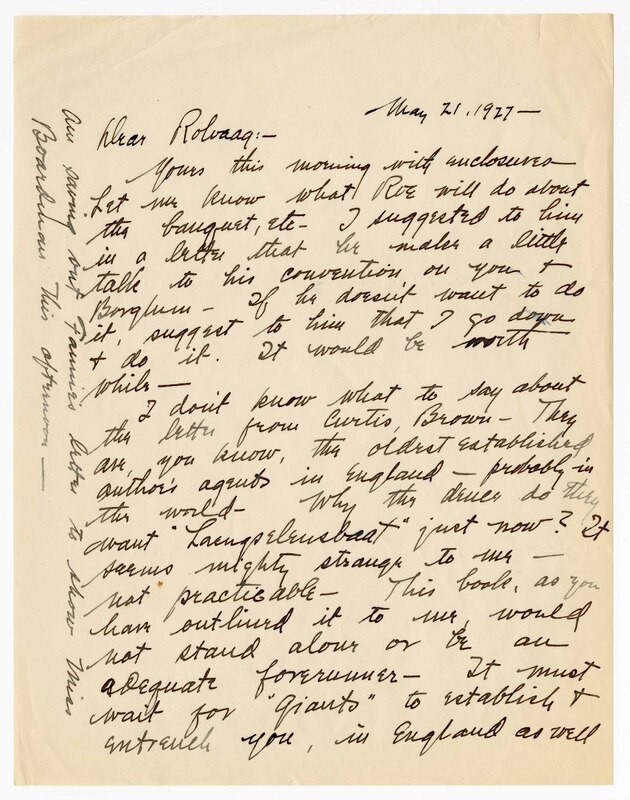 May 21, 1927—
Dear Rolvaag:-
Yours this morning with enclosures
Let me know what Roe will do about
the banquet, etc- I suggested to him
in a letter that he make a little
talk to his convention on you +
Borglum- If he doesn't want to do
it, suggest to him that I go down
+ do it. It would be worth
while-
I don't know what to say about
the letter from Curtis, Brown- They
are, you know, the oldest established
author's agents in England- probably in
the world- Why the deuce do they
want "Laengselensbaat" just now? It
seems mighty strange to me-
not practicable- This book, as you
have outlined it to me, would
not stand alone or be an
adequate forerunner- It must
wait for "Giants" to establish +
entrench you, in England as well
Am saving out Fannies letter to show Miss
Boardman this afternoon-